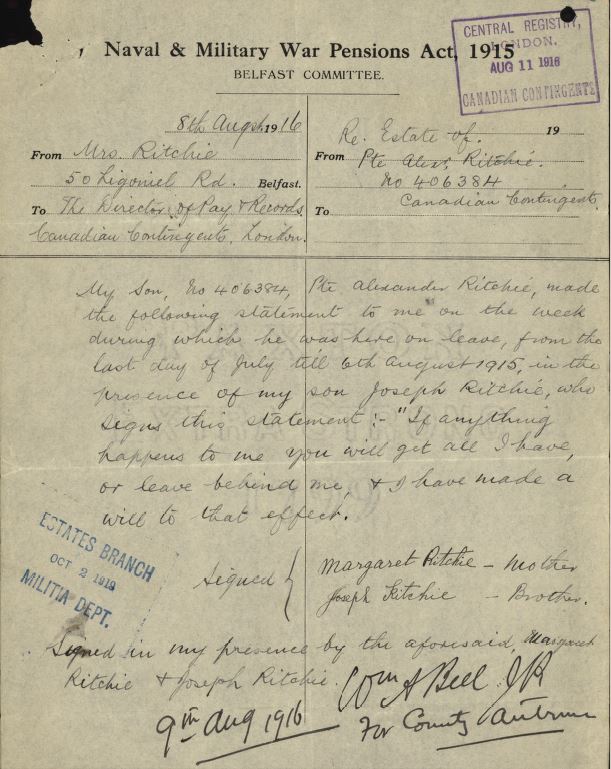 Naval & Military War Pensions Act, 1915
BELFAST COMMITTEE.
CENTRAL REGISTRY,
LONDON.
AUG 11 1916
CANADIAN CONTINGENTS
8th Augst. 1916
From Mrs. Ritchie
50 Ligoniel Rd. Belfast.
To The Director of Pay & Records
Canadian Contingents, London.
Re. Estate of. 19
From Pte Alexr. Ritchie.
No 406384
Canadian Contingents
To
My Son, No 406384, Pte Alexander Ritchie, made
the following statement to me on the week
during which he was here on leave, from the
last day of July till 6th August 1915, in the
presence of my son Joseph Ritchie, who
signs this statement :- "If anything
happens to me you will get all I have,
or leave behind me, & I have made a
will to that effect.
ESTATES BRANCH
OCT 2 1919
MILITIA DEPT.
Signed { Margaret Ritchie – Mother
Joseph Ritchie – Brother.
Signed in my presence by the aforesaid, Margaret
Ritchie & Joseph Ritchie.
Wm A Bell JP
For County Antrim
9th Aug 1916